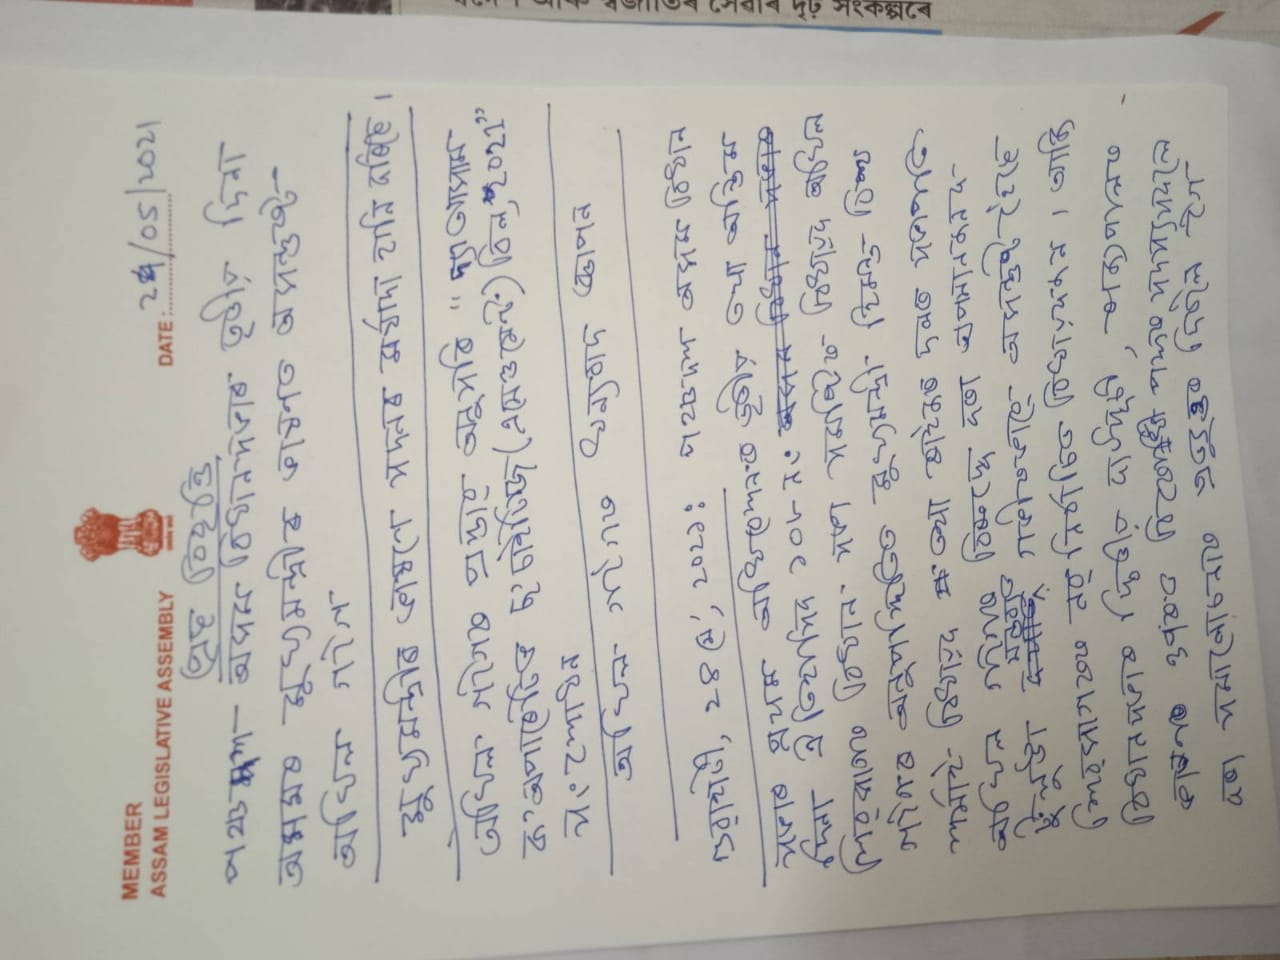 MEMBER
ASSAM LEGISLATIVE ASSEMBLY
DATE: 24/05/2021
প্ৰেছ বিবৃতি
পঞ্চদশ অসম বিধানসভাৰ তৃতীয় দিনা
অসমৰ মুখ্যমন্ত্ৰীৰ ভাষণত অসন্তুষ্ট
অখিল গগৈ
মুখ্যমন্ত্ৰীৰ ভাষণে সদনৰ মৰ্যাদা হানি কৰিছে।
অখিল গগৈৰ প্ৰস্তাৱ অনুসৰি "দ্যা আসাম
ক'অপাৰেটিভ ছ'চাইটিজ (এমেণ্ডমেন্ট) বিল, ২০২১"
সংশোধন
অখিল গগৈৰ ধন্যবাদ জ্ঞাপন
গুৱাহাটী, ২৪ মে', ২০২১: পঞ্চদশ অসম বিধান
সভাৰ প্ৰথম অধিবেশনৰ তৃতীয় তথা অন্তিম
দিনা ঐতিহাসিক ১০৮ নং অসম বিধান সভাৰ
শিৱসাগৰ বিধান সভা সমষ্টিৰ বিধায়ক অখিল
গগৈৰ অনুপস্থিতিত মুখ্যমন্ত্ৰী হিমন্ত বিশ্ব
শৰ্মাই বিধায়ক তথা ৰাইজৰ দলৰ সভাপতি
অখিল গগৈৰ বিৰুদ্ধে কৰা অপমানজনক
মন্তব্যত
গভীৰভাৱে অসন্তুষ্ট হৈছে
শিৱসাগৰৰ নৱ নিৰ্বাচিত বিধায়কজন। আজি
বিধানসভাৰ দ্বিতীয় কাৰ্যসূচী, ৰাজ্যপালৰ
ভাষণৰ ওপৰত বিৰোধী পক্ষৰ সদস্যসকলে
কৰা সমালোচনাৰ প্ৰত্যুত্তৰ দিবলৈ গৈ